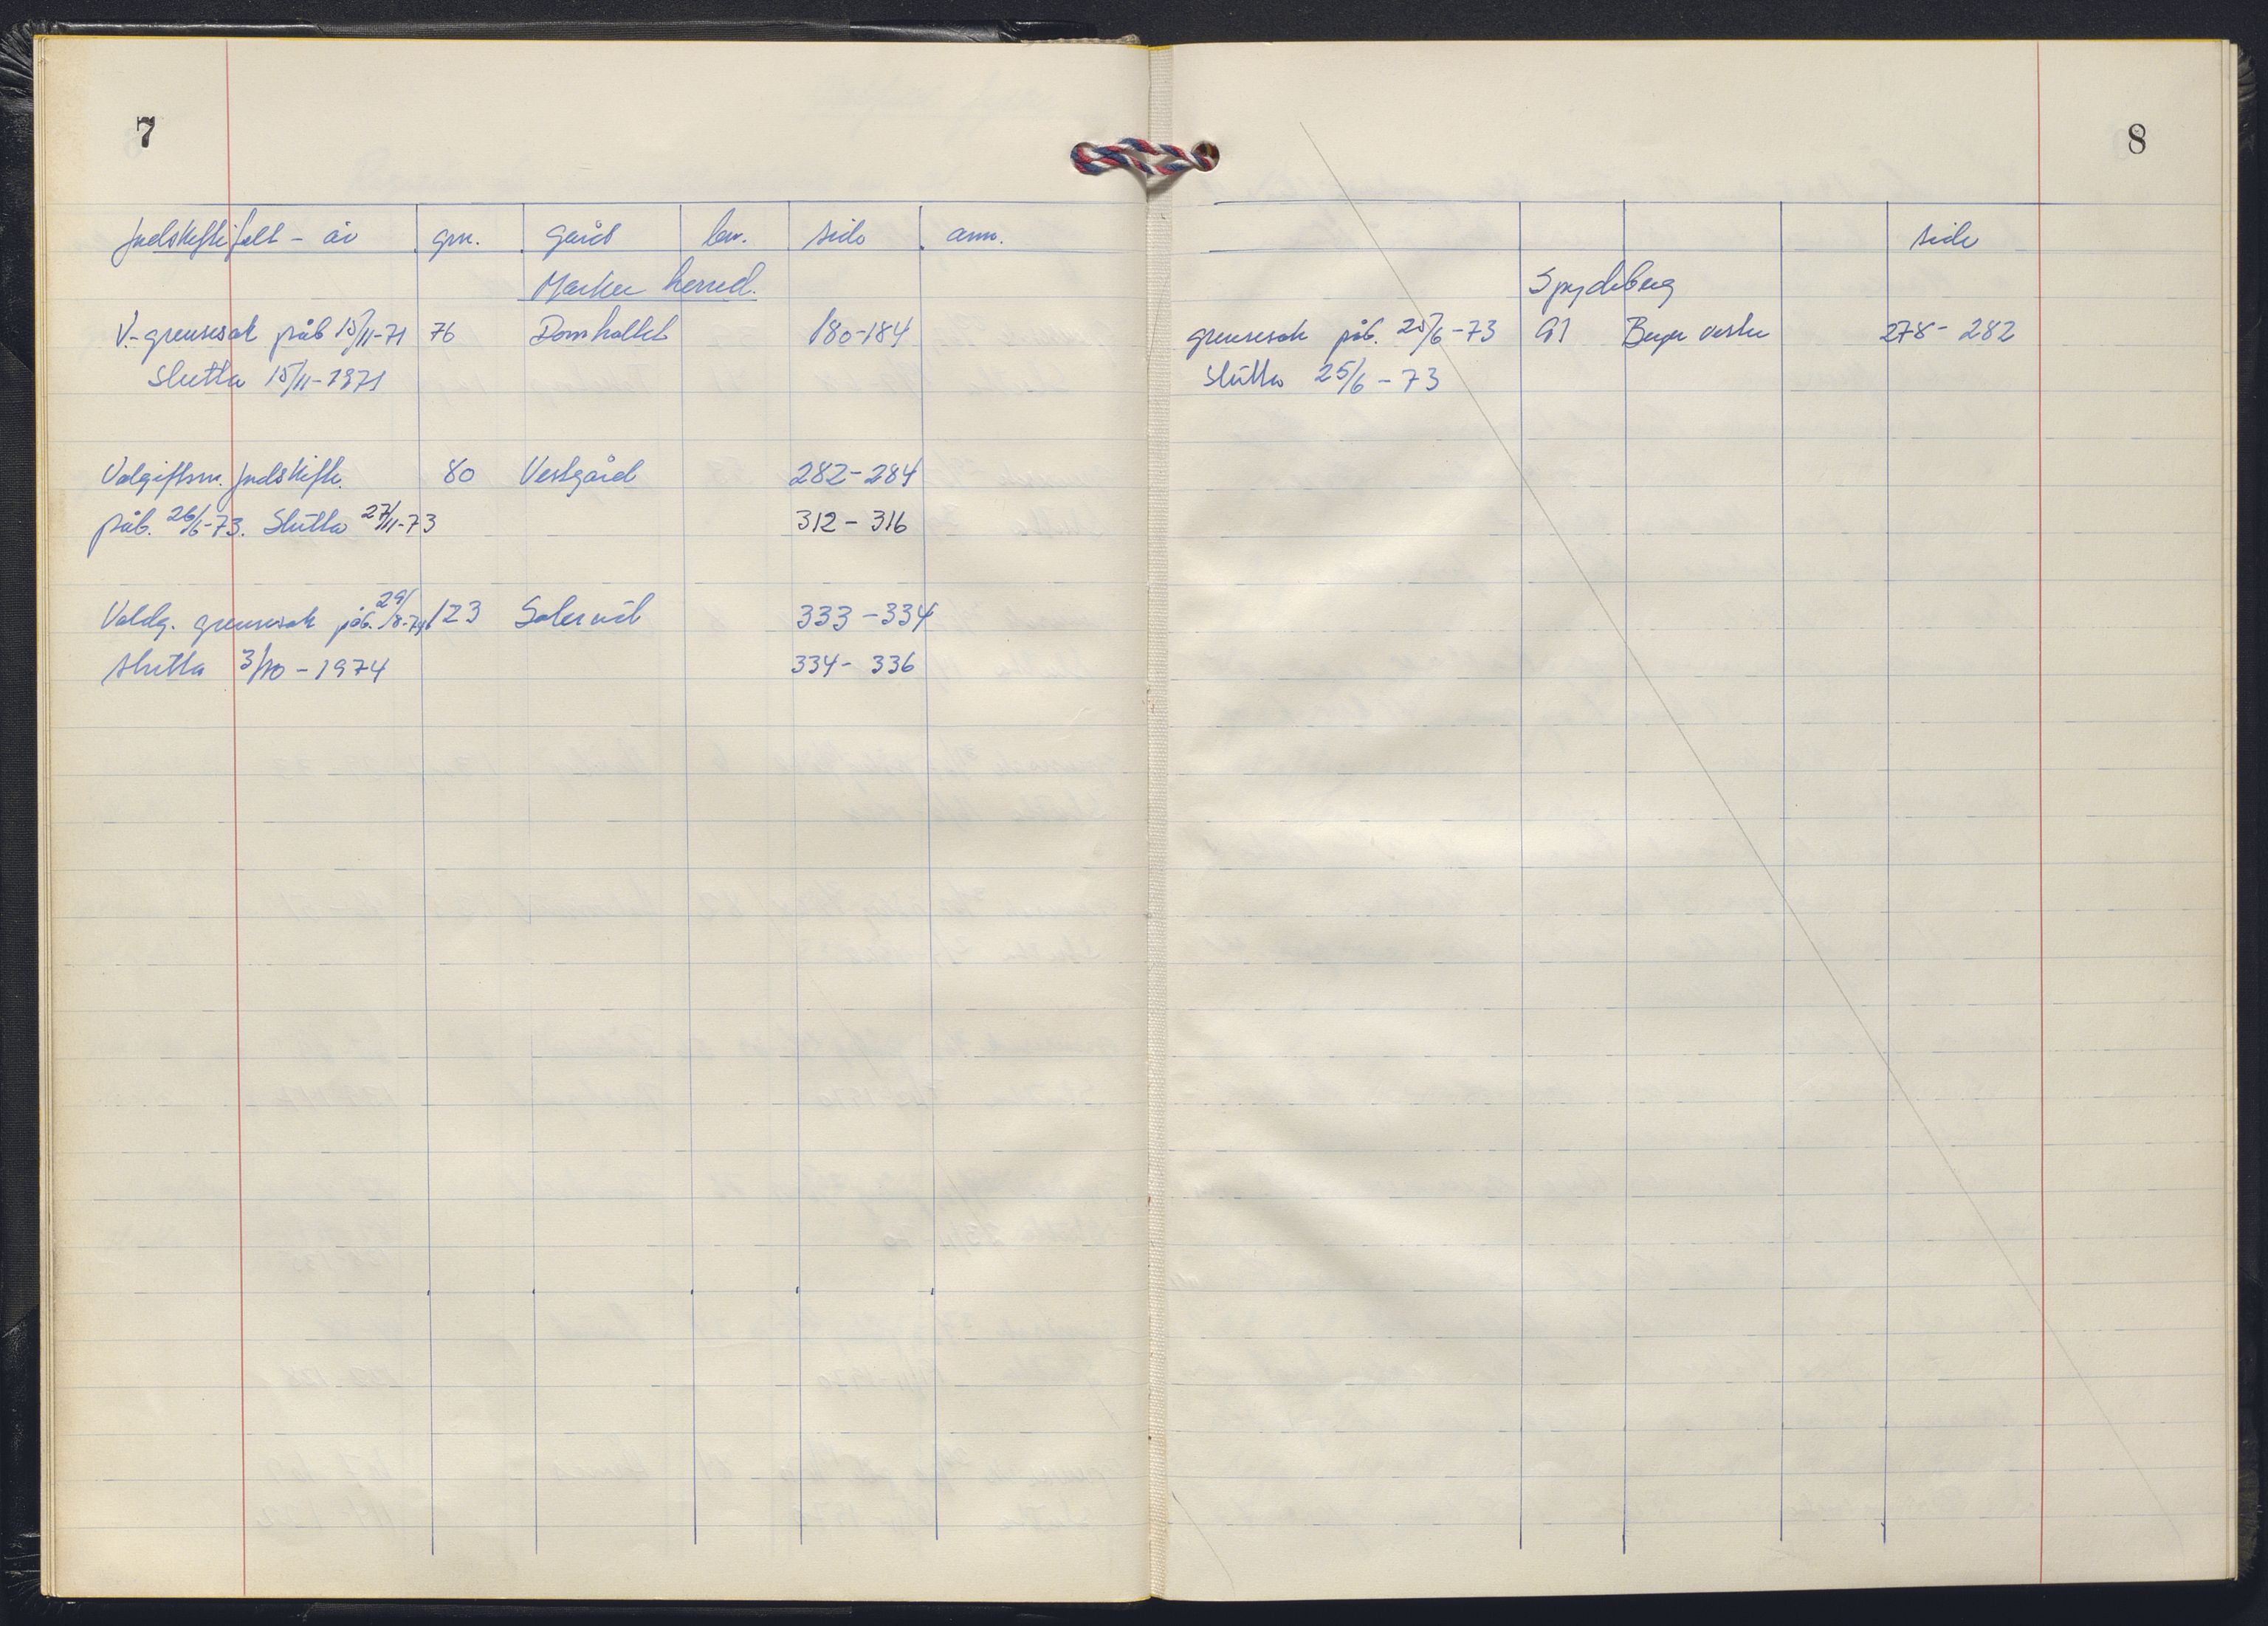 7
Jordskiftefelt - år gnr. gård bnr. side anm.
Marker herred.
V.-grensesak påb 15/11-71 76 Damholtet 180-184
Slutta 15/11-1971
Valgiftsm. Jordskifte. 80 Vestgård 282-284
påb. 26/6-73. Slutta 27/11-73 312-316
Voldg. grensesak påb. 29/8-74 123 333-334
slutta 3/10-1974 334-336
8
side
Spydeberg
grensesak påb. 25/6-73 91 Berger vestre 278-282
Slutta 25/6-73